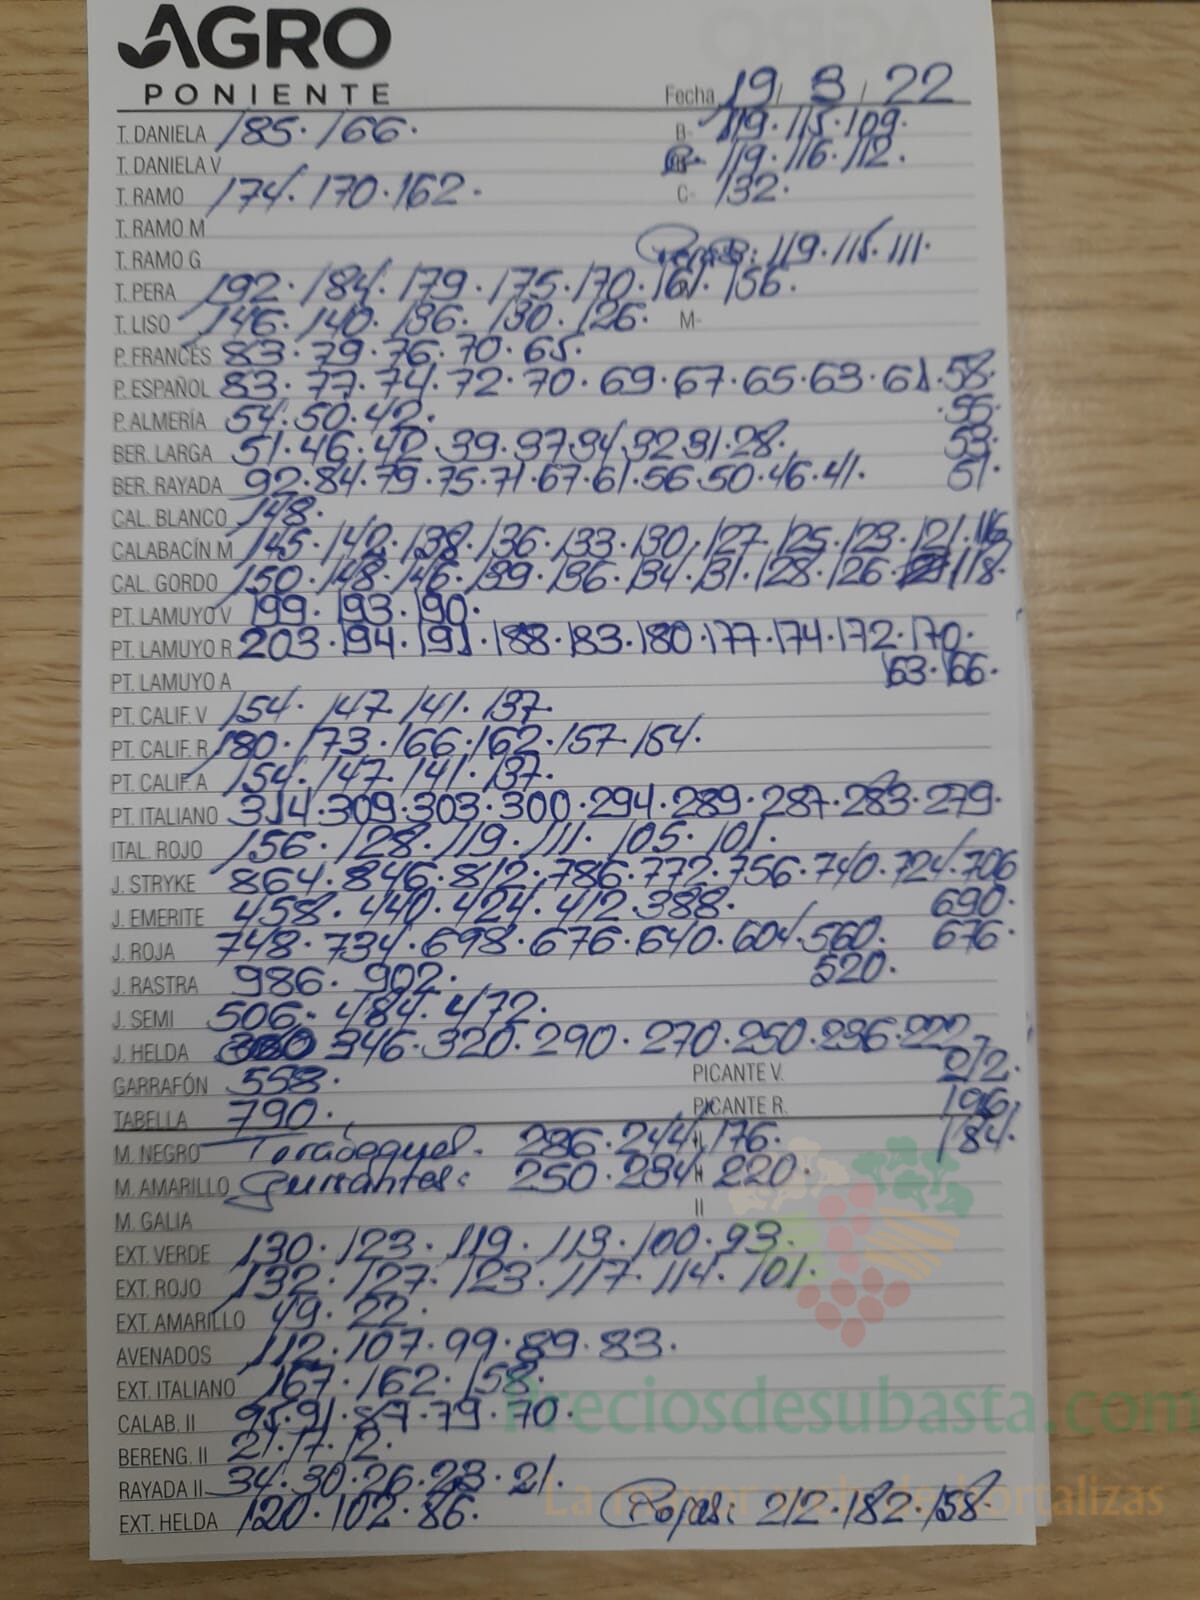 AGRO
PONIENTE
Fecha 19 / 3 / 22
T. DANIELA 185. 166. B- 119. 115. 109.
T. DANIELA V 119. 116. 112.
T. RAMO 174. 170. 162. C- 132.
T. RAMO M
T. RAMO G 119. 115. 111.
T. PERA 192. 184. 179. 175. 170. 161. 156.
T. LISO 146. 140. 136. 130. 126. M-
P. FRANCÉS 83. 79. 76. 70. 65.
P. ESPAÑOL 83. 77. 74. 72. 70. 69. 67. 65. 63. 61. 58.
P. ALMERÍA 54. 50. 42. 55.
BER. LARGA 51. 46. 42. 39. 37. 34. 32. 31. 28. 53.
BER. RAYADA 92. 84. 79. 75. 71. 67. 61. 56. 50. 46. 41. 51.
CAL. BLANCO 148.
CALABACÍN M 145. 142. 138. 136. 133. 130. 127. 125. 123. 121. 116
CAL. GORDO 150. 148. 146. 139. 136. 134. 131. 128. 126. 118.
PT. LAMUYO V 199. 193. 190.
PT. LAMUYO R 203. 194. 191. 188. 183. 180. 177. 174. 172. 170.
PT. LAMUYO A 163. 166.
PT. CALIF. V 154. 147. 141. 137.
PT. CALIF. R 180. 173. 166. 162. 157. 154.
PT. CALIF. A 154. 147. 141. 137.
PT. ITALIANO 314. 309. 303. 300. 294. 289. 287. 283. 279.
ITAL. ROJO 156. 128. 119. 111. 105. 101.
J. STRYKE 864. 846. 812. 786. 772. 756. 740. 724. 706
J. EMERITE 458. 440. 424. 412. 388. 690.
J. ROJA 748. 734. 698. 676. 640. 604. 560. 676.
J. RASTRA 986. 902. 520.
J. SEMI 506. 484. 472.
J. HELDA 346. 320. 290. 270. 250. 236. 222.
GARRAFÓN 558. PICANTE V. 212.
TABELLA 790. PICANTE R. 196.
M. NEGRO 286. 244. 176. 184.
M. AMARILLO Guisantes: 250. 234. 220.
M. GALIA II
EXT. VERDE 130. 123. 119. 113. 100. 93.
EXT. ROJO 132. 127. 123. 117. 114. 101.
EXT. AMARILLO 49. 22.
AVENADOS 112. 107. 99. 89. 83.
EXT. ITALIANO 167. 162. 158.
Preciosdesubasta.com
CALAB. II 95. 91. 87. 79. 70.
BERENG. II 21. 17. 12.
RAYADA II 34. 30. 26. 23. 21.
EXT. HELDA 120. 102. 86. Rojas: 212. 182. 158.